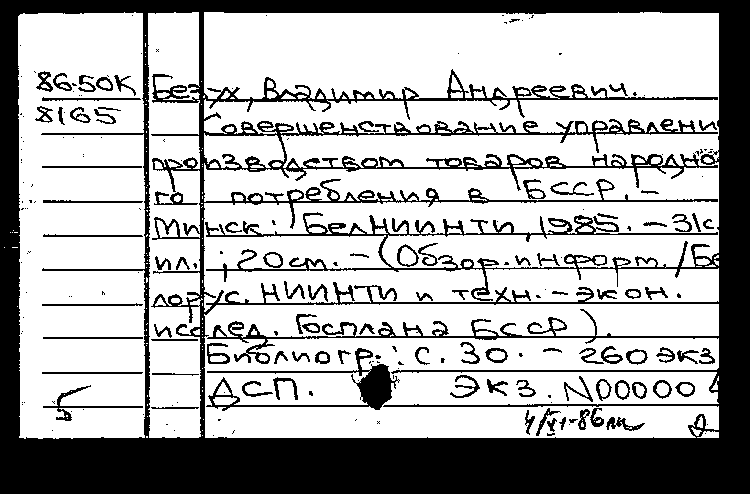 86.50К Безух, Владимир Андреевич.
8165 Совершенствование управлени
производством товаров народно
го потребления в БССР. –
Минск: БелНИИНТИ, 1985. – 31с.
ил.; 20 cm. – (Обзор. информ./Бе
лорус. НИИНТИ и техн.-экон.
исслед. Госплана БССР).
Библиогр.: с. 30. – 260 экз
ДСП. Экз. N00000